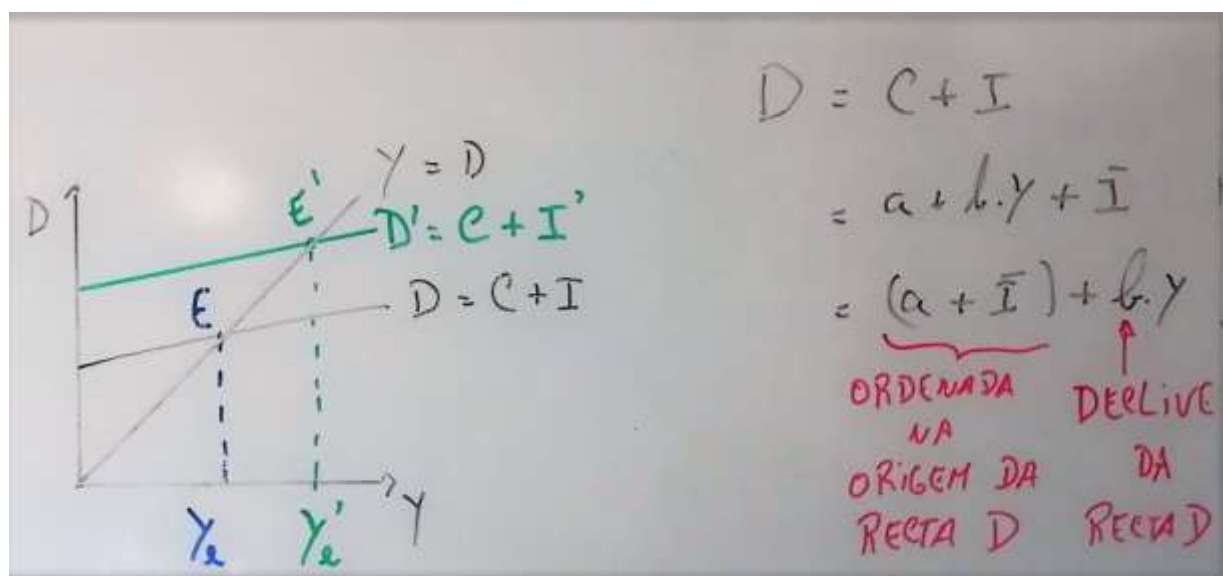 D
E'
Y = D
D' = C + I'
E
D = C + I
Y
Ye
Ye'
D = C + I
= a + b.Y + Ī
= (a + Ī) + b.Y
ORDENADA
NA
ORIGEM DA
RECTA D
DECLIVE
DA
RECTA D